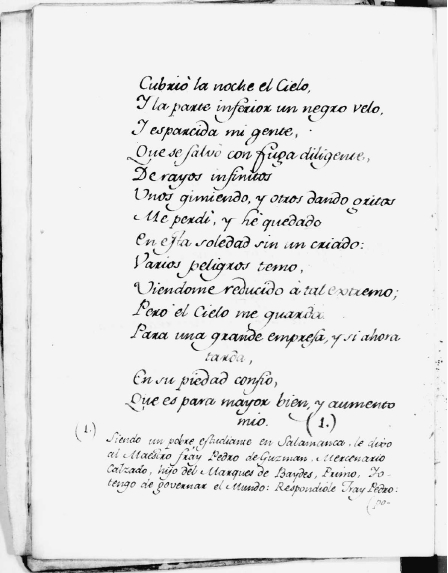 Cubriò la noche el Cielo,
Y la parte inferior un negro velo,
Y esparcida mi gente,
Que se salvò con fuga diligente,
De rayos infinitos
Unos gimiendo, y otros dando gritos
Me perdì, y hè quedado
en esta soledad sin un criado:
Varios peligros temo,
Viendome reducido à tal extremo;
Pero el Cielo me guarda
Para una grande empresa, y si ahora
tarda,
En su piedad confio,
Que es para mayor bien, y aumento
mio. (1.)
(1.) Siendo un pobre estudiante en Salamanca, le dixo
al Maestro fray Pedro de Guzman, Mercenario
Calzado, hijo del Marques de Baydes, Primo, Yo
tengo de governar el Mundo: Respondiòle Fray Pedro:
(po-